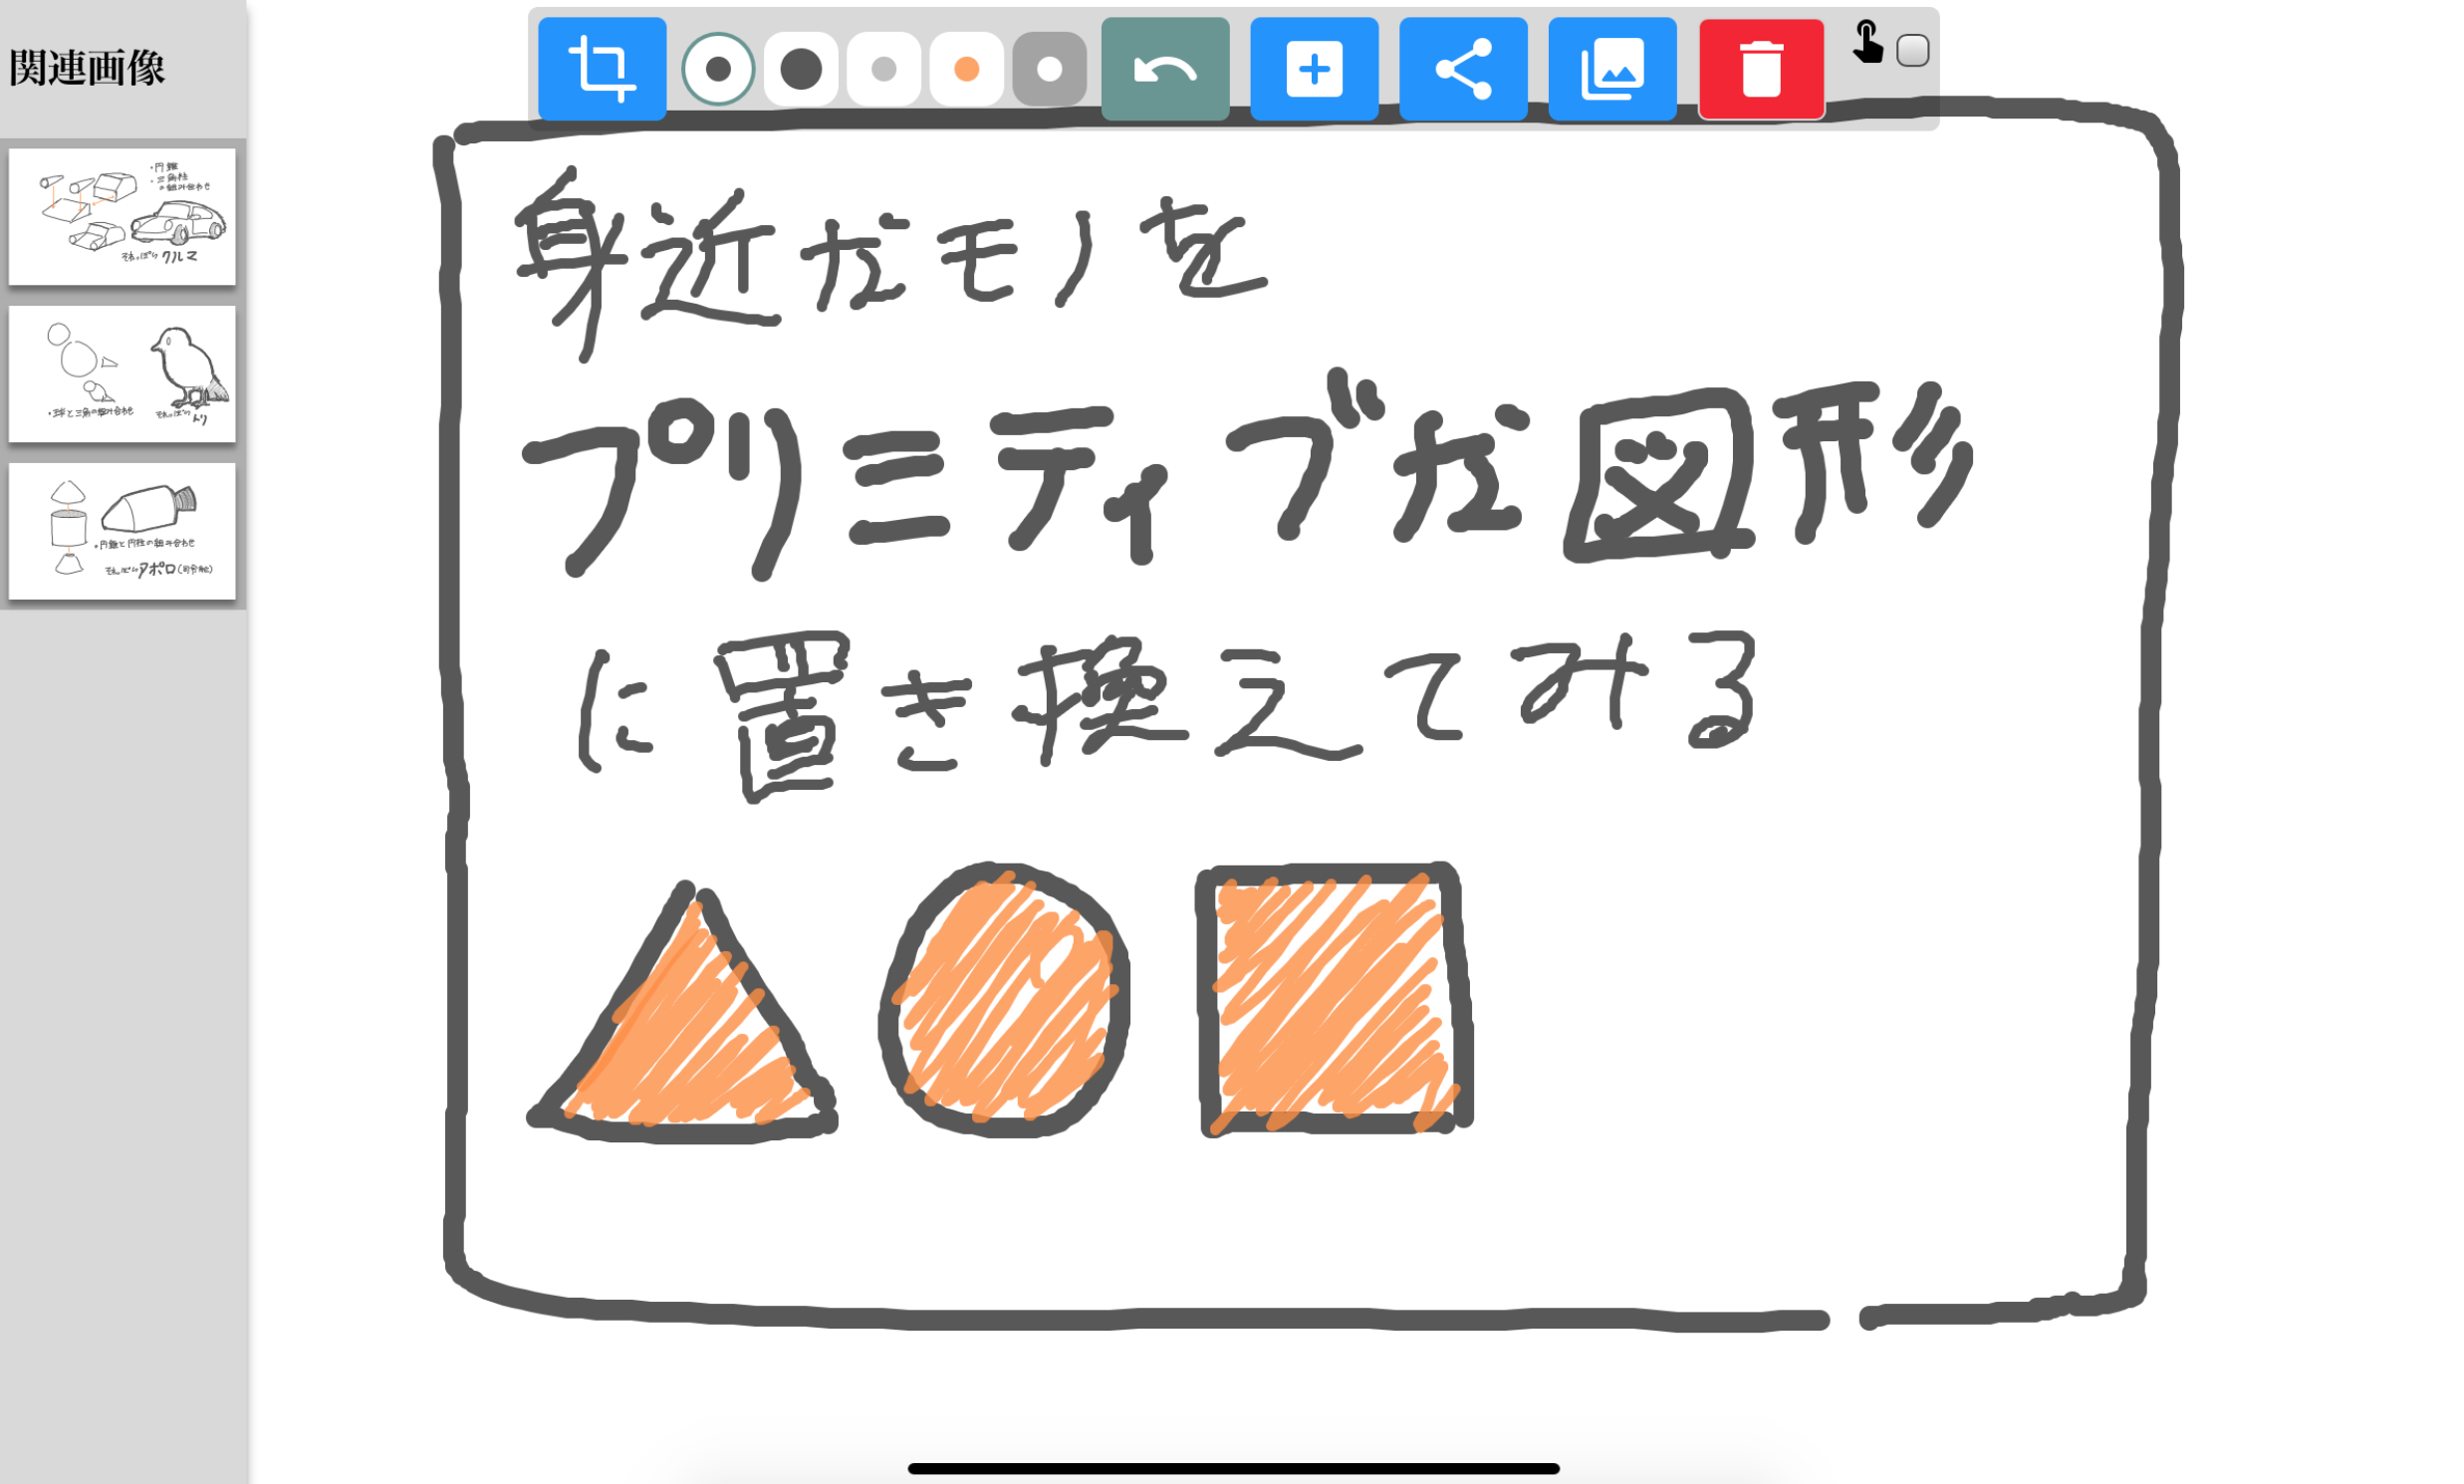 関連画像
・円錐
・三角柱
の組み合わせ
それっぽい クルマ
・球と三角の組み合わせ
それっぽい トリ
・円錐と円柱の組み合わせ
それっぽい アポロ(司令船)
身近なモノを
プリミティブな図形
に置き換えてみる